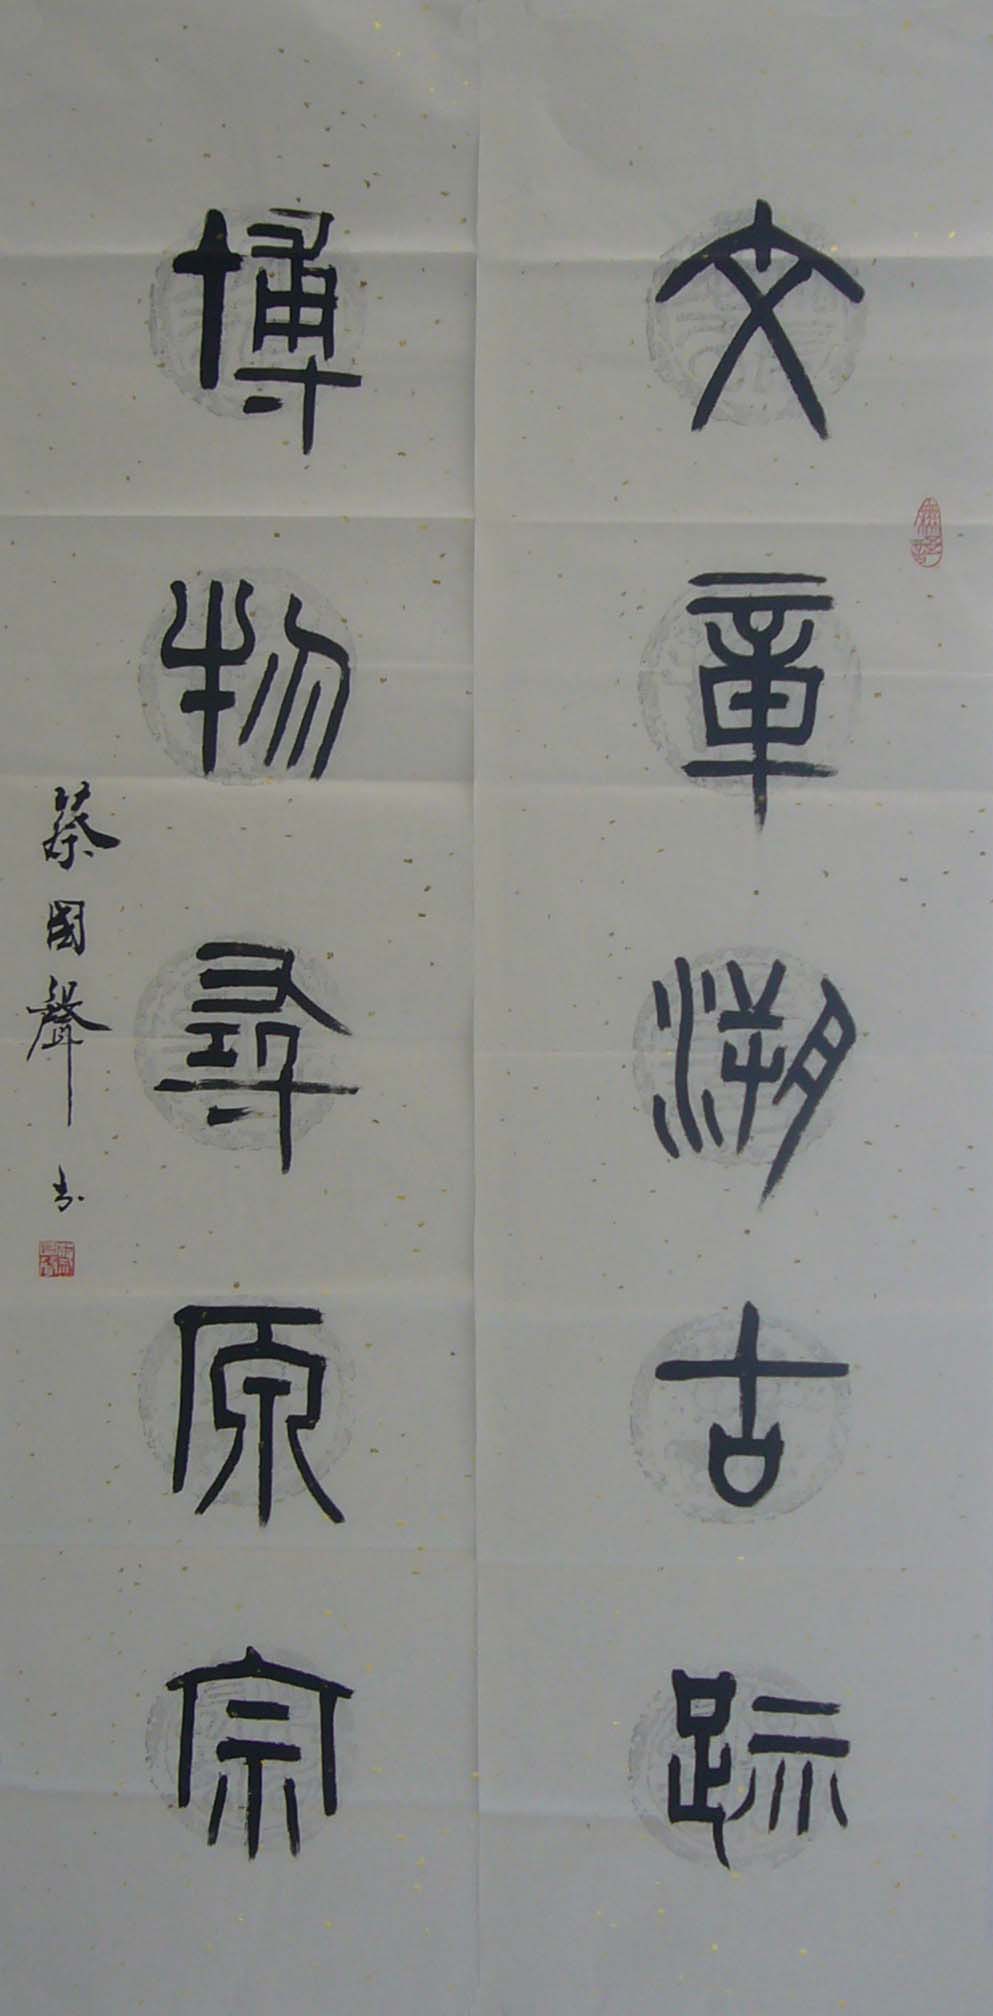 文章溯古跡
博物尋原宗
蔡國聲书